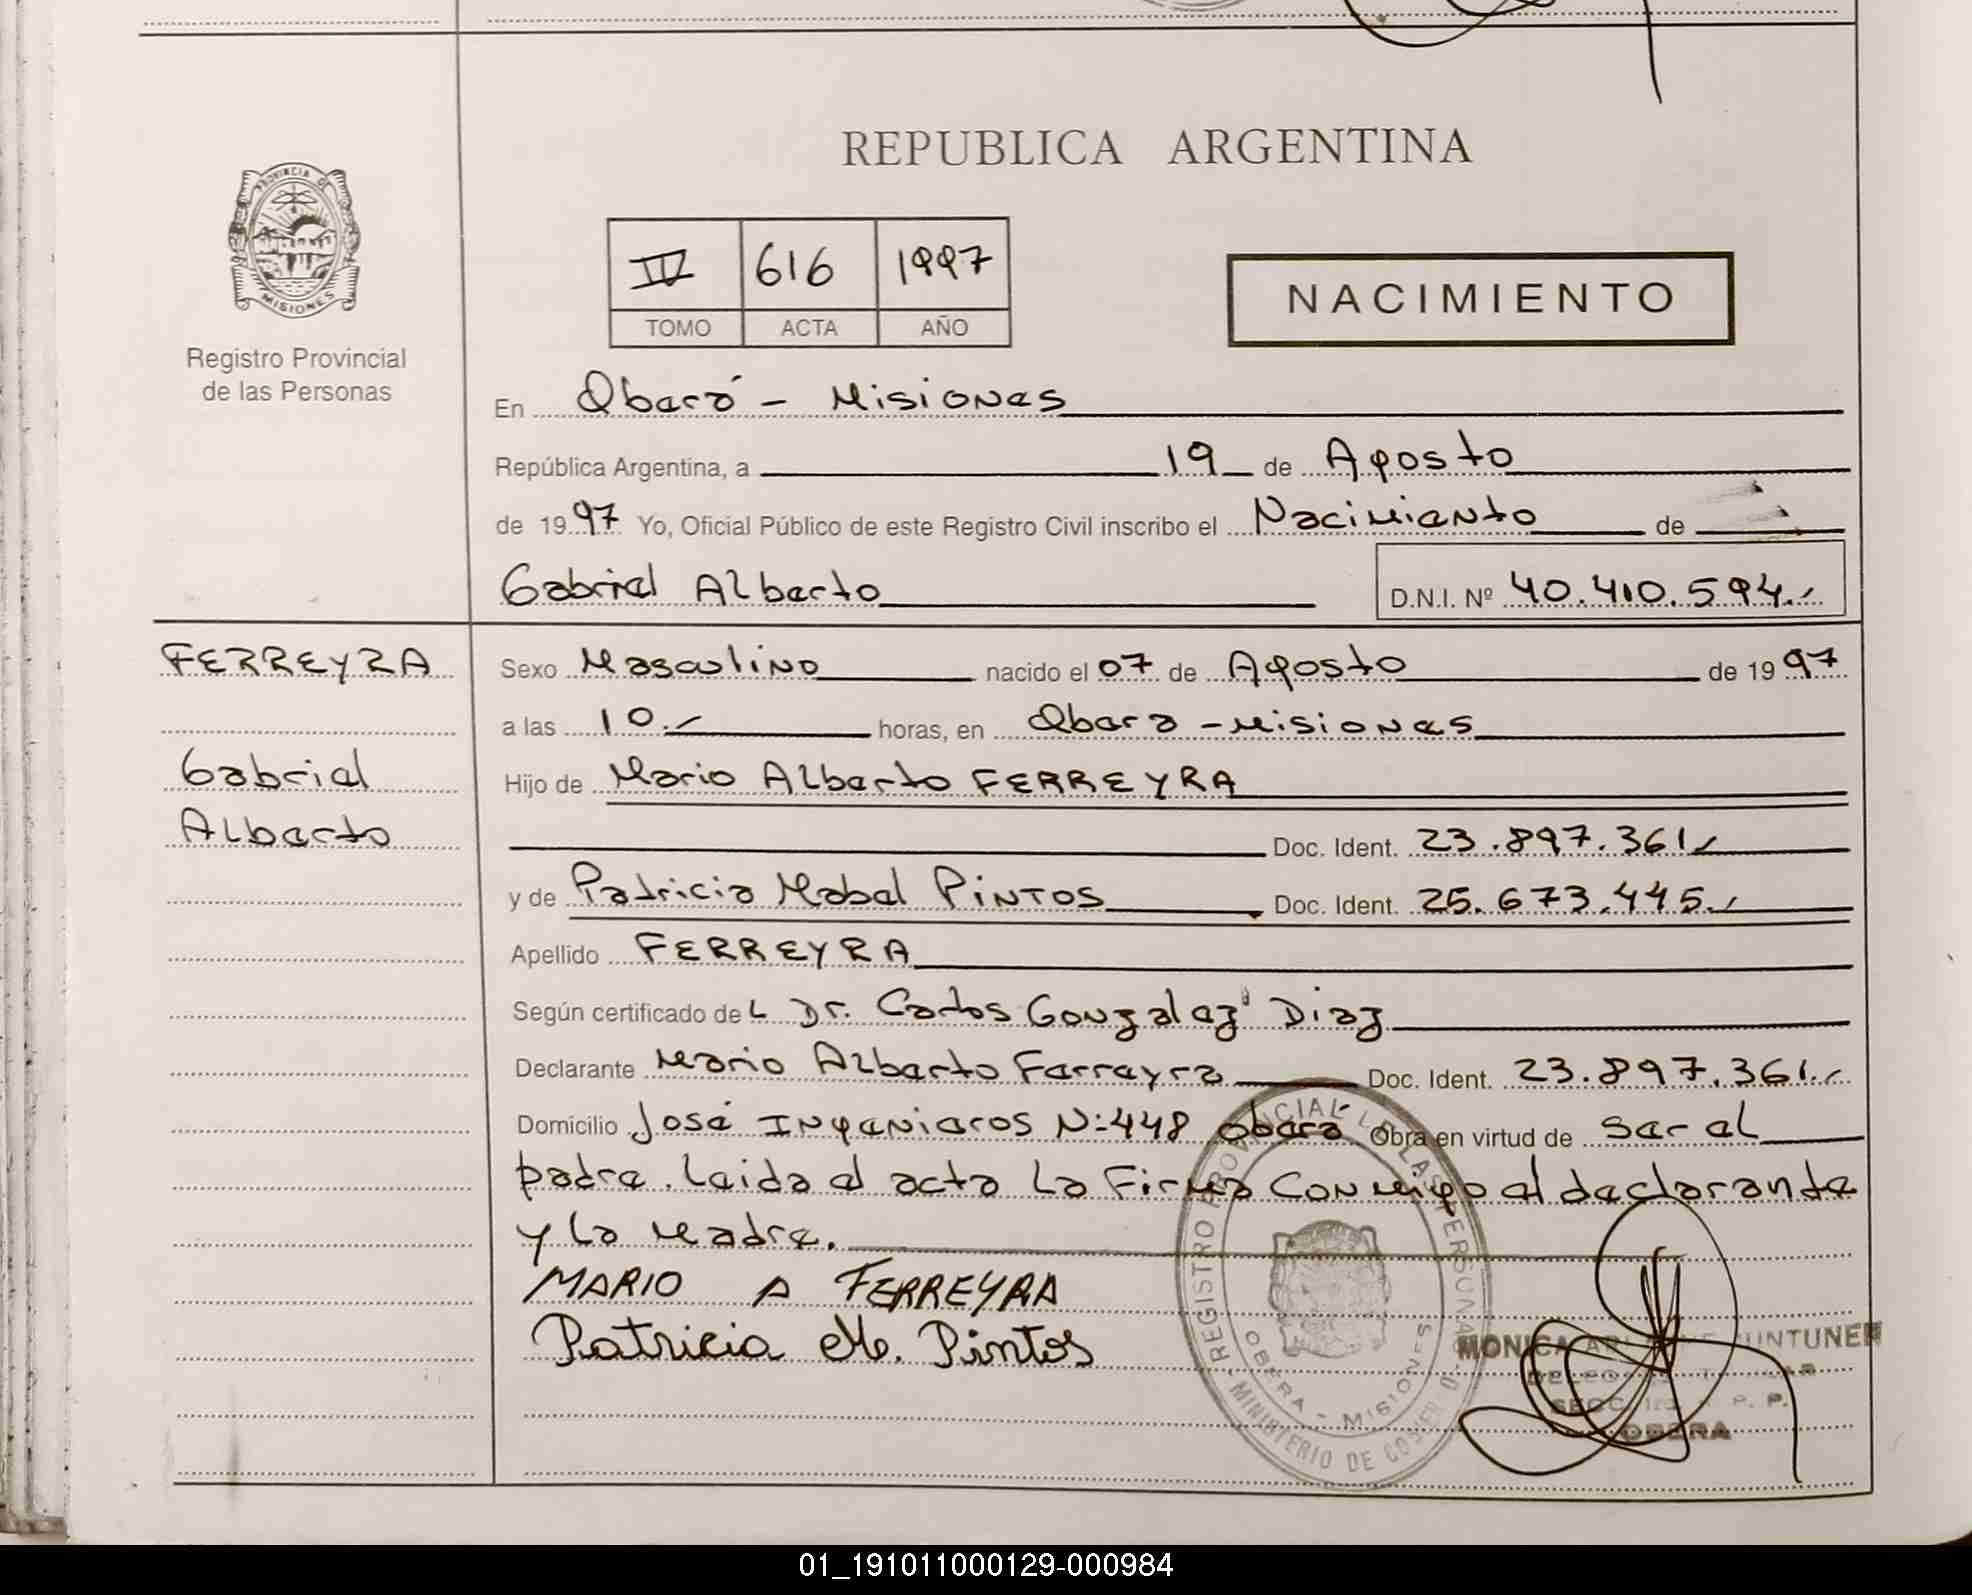 REPUBLICA ARGENTINA
PROVINCIA DE
MISIONES
Registro Provincial
de las Personas
IV 616 1997
TOMO ACTA AÑO
NACIMIENTO
En Oberá - Misiones
República Argentina, a 19 de Agosto
de 1997 Yo, Oficial Público de este Registro Civil inscribo el Nacimiento de
Gabriel Alberto D.N.I. Nº 40.410.594.-
FERREYRA
Gabriel
Alberto
Sexo Masculino nacido el 07 de Agosto de 1997
a las 10.- horas, en Obera - Misiones
Hijo de Mario Alberto FERREYRA
Doc. Ident. 23.897.361.-
y de Patricia Mabel PINTOS Doc. Ident. 25.673.445.-
Apellido FERREYRA
Según certificado del Dr. Carlos Gonzalez Diaz
Declarante Mario Alberto Ferreyra Doc. Ident. 23.897.361.-
Domicilio José Ingenieros N:448 Obera Obra en virtud de ser el
padre. Leida el acta la Firma Conmigo el declarante
y la Madre.
MARIO A FERREYRA
Patricia M. Pintos
REGISTRO PROVINCIAL DE LAS PERSONAS
OBERA - MISIONES
MINISTERIO DE GOBIERNO
MONICA
SECC. P. P.
OBERA
01_191011000129-000984